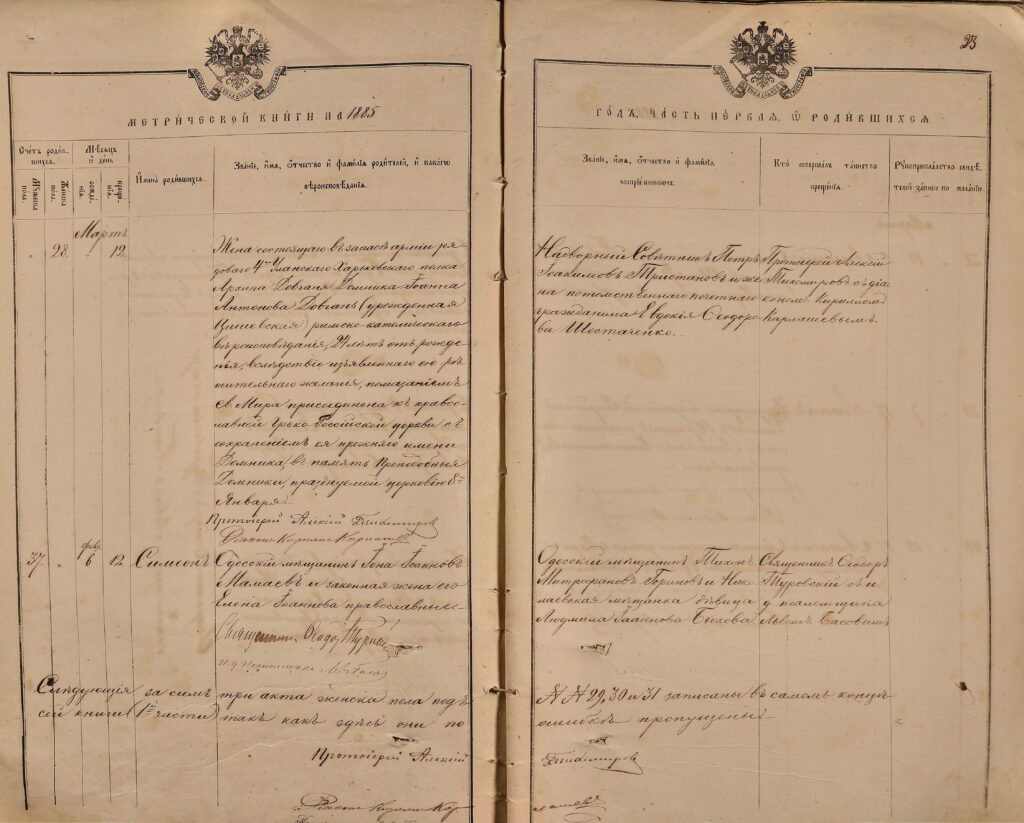 23
МЕТРИЧЕСКОЙ КНИГИ НА 1885
ГОДЪ, ЧАСТЬ ПЕРВАЯ, Ѡ РОДИВШИХСЯ
Счетъ родив-
шихся.
Мѣсяцъ
и день
Мужеска
пола.
Женска
пола.
рожде-
нія.
креще-
нія.
Имена родившихся.
Званіе, имя, отчество и фамилія родителей, и какого
вѣроисповѣданія.
Званіе, имя, отчество и фамилія
воспріемниковъ.
Кто совершалъ таинство
крещенія.
Рукоприкладство свидѣ-
телей записи по желанію.
Мартъ
" 28 " 12
Жена состоящаго въ запасѣ арміи ря-
доваго 4го Уланскаго Харьковскаго полка
Архипа Довганя Домника-Іоанна
Антонова Довгань (урожденная
римско-католическаго
вѣроисповѣданія, 24 лѣтъ отъ рожде-
нія, вслѣдствіе изъявленнаго ею рѣ-
шительнаго желанія, помазаніемъ
Св. Мѵра присоединена къ право-
славной Греко-Россійской церкви съ
сохраненіемъ ея прежняго имени
Домника, въ память Преподобныя
Домники, празднуемой церковію 8го
Января.
Протоіерей Алексій Тихомировъ
Діаконъ Кириллъ
Надворный Совѣтникъ Петръ
Іоакимовъ и же-
на потомственнаго почетнаго
гражданина Евдокія Ѳеодоро-
ва Шостаченко.
Протоіерей Алексій
Тихомировъ съ діа-
кономъ Кирилломъ
Карлашевымъ.
37. " февр. 6 12 Симеонъ
Одесскій мѣщанинъ Іона Іоанновъ
Мамаевъ и законная жена его
Елена Іоаннова православные.
Священникъ Ѳеодоръ
И. д. Псаломщика Левъ
Одесскій мѣщанинъ Тихонъ
Митрофановъ Горяновъ и Нико-
лаевская мѣщанка дѣвица
Людмила Іоаннова Быкова
Священникъ Ѳеодоръ
Туровскій съ и.
д. псаломщика
Львомъ Басовымъ
Слѣдующія за симъ три акта женска пола подъ №№ 29, 30 и 31 записаны въ самомъ концѣ
сей книги (1й части) такъ какъ здѣсь они по ошибкѣ пропущены.
Протоіерей Алексій Тихомировъ
Діаконъ Кириллъ Карлашевъ